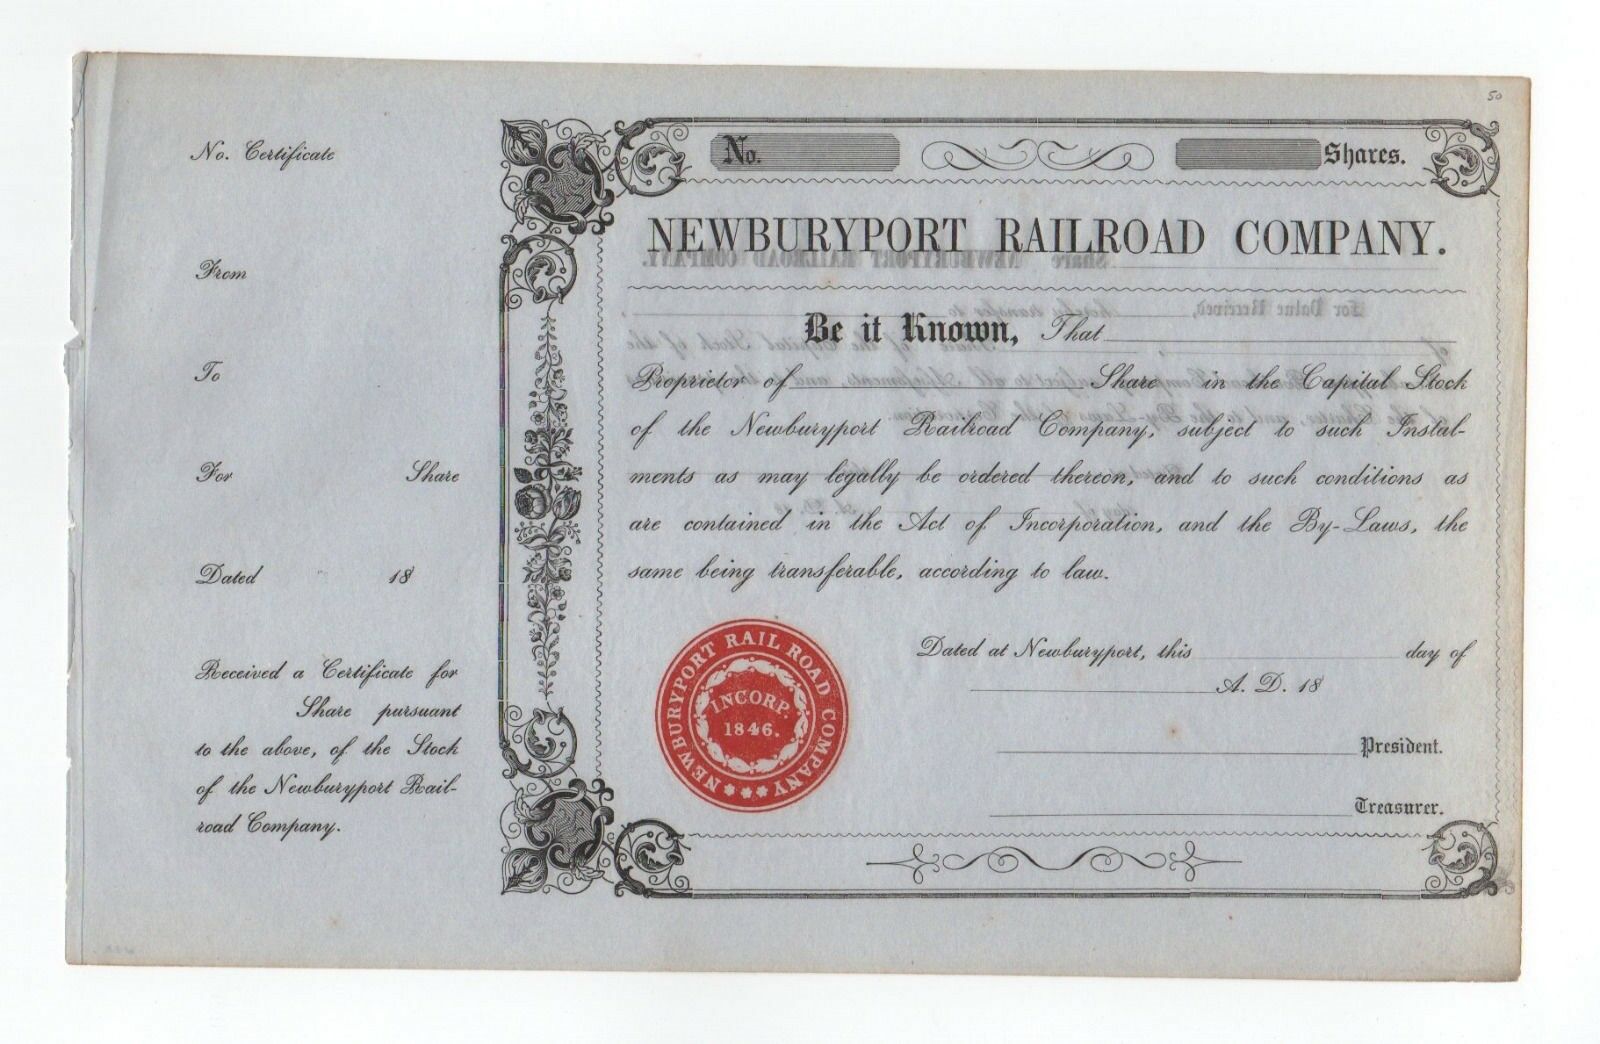 50
No. Certificate
From
To
For Share
Dated 18
Received a Certificate for
Share pursuant
to the above, of the Stock
of the Newburyport Rail-
road Company.
No. Shares.
NEWBURYPORT RAILROAD COMPANY.
Be it Known, That
Proprietor of Share in the Capital Stock
of the Newburyport Railroad Company, subject to such Instal-
ments as may legally be ordered thereon, and to such conditions as
are contained in the Act of Incorporation, and the By-Laws, the
same being transferable, according to law.
NEWBURYPORT RAIL ROAD COMPANY
INCORP.
1846.
Dated at Newburyport, this day of
A. D. 18
President.
Treasurer.